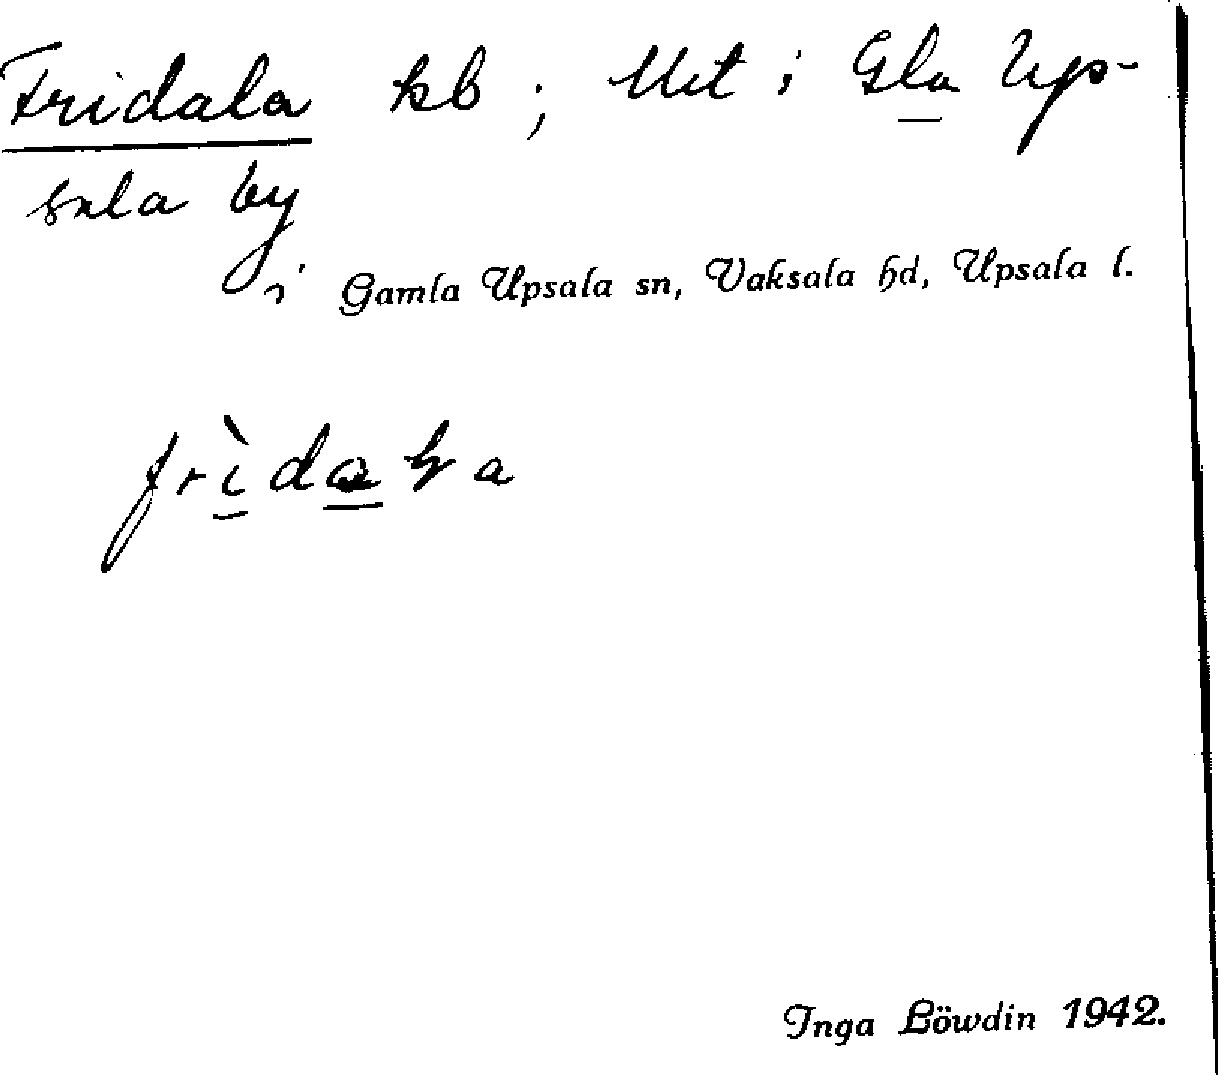 Fridala kb; Urt i Gla Up-
sala by
i Gamla Upsala sn, Vaksala hd, Upsala l.
frìdaɫa
Inga Löwdin 1942.